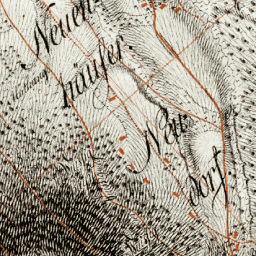 Neuen-
häuser.
Neu
dorf